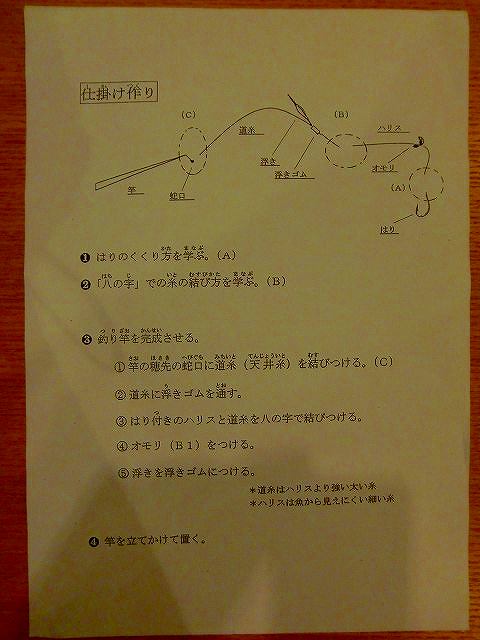 仕掛け作り
（C）
道糸
（B）
ハリス
浮き
浮きゴム
オモリ
（A）
竿
蛇口
はり
❶ はりのくくり方を学ぶ。（A）
❷ 「八の字」での糸の結び方を学ぶ。（B）
❸ 釣り竿を完成させる。
①竿の穂先の蛇口に道糸（天井糸）を結びつける。（C）
②道糸に浮きゴムを通す。
③はり付きのハリスと道糸を八の字で結びつける。
④オモリ（B1）をつける。
⑤浮きを浮きゴムにつける。
＊道糸はハリスより強い太い糸
＊ハリスは魚から見えにくい細い糸
❹ 竿を立てかけて置く。